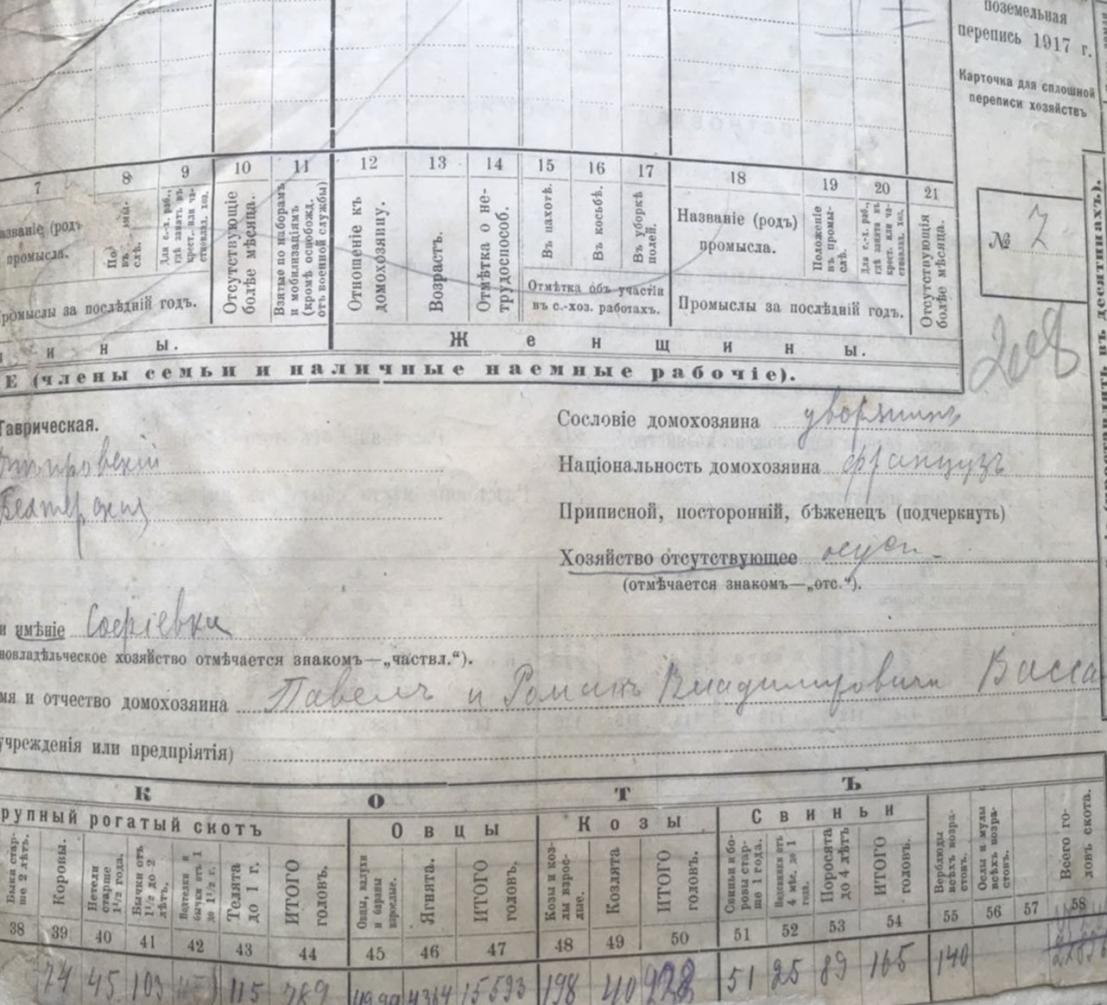 поземельная
перепись 1917 г.
Карточка для сплошной
переписи хозяйствъ
№ 7
208
7 8 9 10 11 12 13 14 15 16 17 18 19 20 21
промысла.
Для с.-х. раб., гдѣ занятъ въ крест. или ча-
Отсутствующіе болѣе мѣсяца.
Взятые по наборамъ и мобилизаціямъ (кромѣ освобожд. отъ военной службы)
Отношеніе къ домохозяину.
Возрастъ.
Отмѣтка о не-трудоспособ.
Въ пахотѣ.
Въ косьбѣ.
Въ уборкѣ полей.
Название (родъ) промысла.
Положеніе въ промы-слѣ.
Для с.-х. раб., гдѣ занята въ крест. или ча-
Отсутствующія болѣе мѣсяца.
Промыслы за послѣдній годъ.
Отмѣтка объ участіи въ с.-хоз. работахъ.
Промыслы за послѣдній годъ.
и н ы.
Ж е н щ и н ы.
Е (члены семьи и наличные наемные рабочіе).
Таврическая.
Сословіе домохозяина дворянинъ
Національность домохозяина французъ
Приписной, посторонній, бѣженецъ (подчеркнуть)
Хозяйство отсутствующее
(отмѣчается знакомъ—„отс.“).
и имѣніе Софіевка
новладѣльческое хозяйство отмѣчается знакомъ—„частвл.“).
мя и отчество домохозяина Павелъ и Романъ Владимировичи Васса
учрежденія или предпріятія)
К О Т Ъ
рупный рогатый скотъ
Овцы
Козы
Свиньи
Быки стар-ше 2 лѣтъ.
Коровы.
Нетели старше 1½ года.
Бычки отъ 1½ до 2 лѣтъ.
Телята до 1 г.
ИТОГО головъ.
Ягнята.
ИТОГО головъ.
Козы и коз-лы взрос-лые.
Козлята
ИТОГО головъ.
Свиньи и бо-ровы стар-ше 1 года.
Поросята до 4 лѣтъ
ИТОГО головъ.
Верблюды всѣхъ возра-стовъ.
Ослы и мулы всѣхъ возра-стовъ.
Всего го-ловъ скота.
38 39 40 41 42 43 44 45 46 47 48 49 50 51 52 53 54 55 56 57 58
74 45 103 115 789 4364 15593 198 40 928 51 25 89 165 140